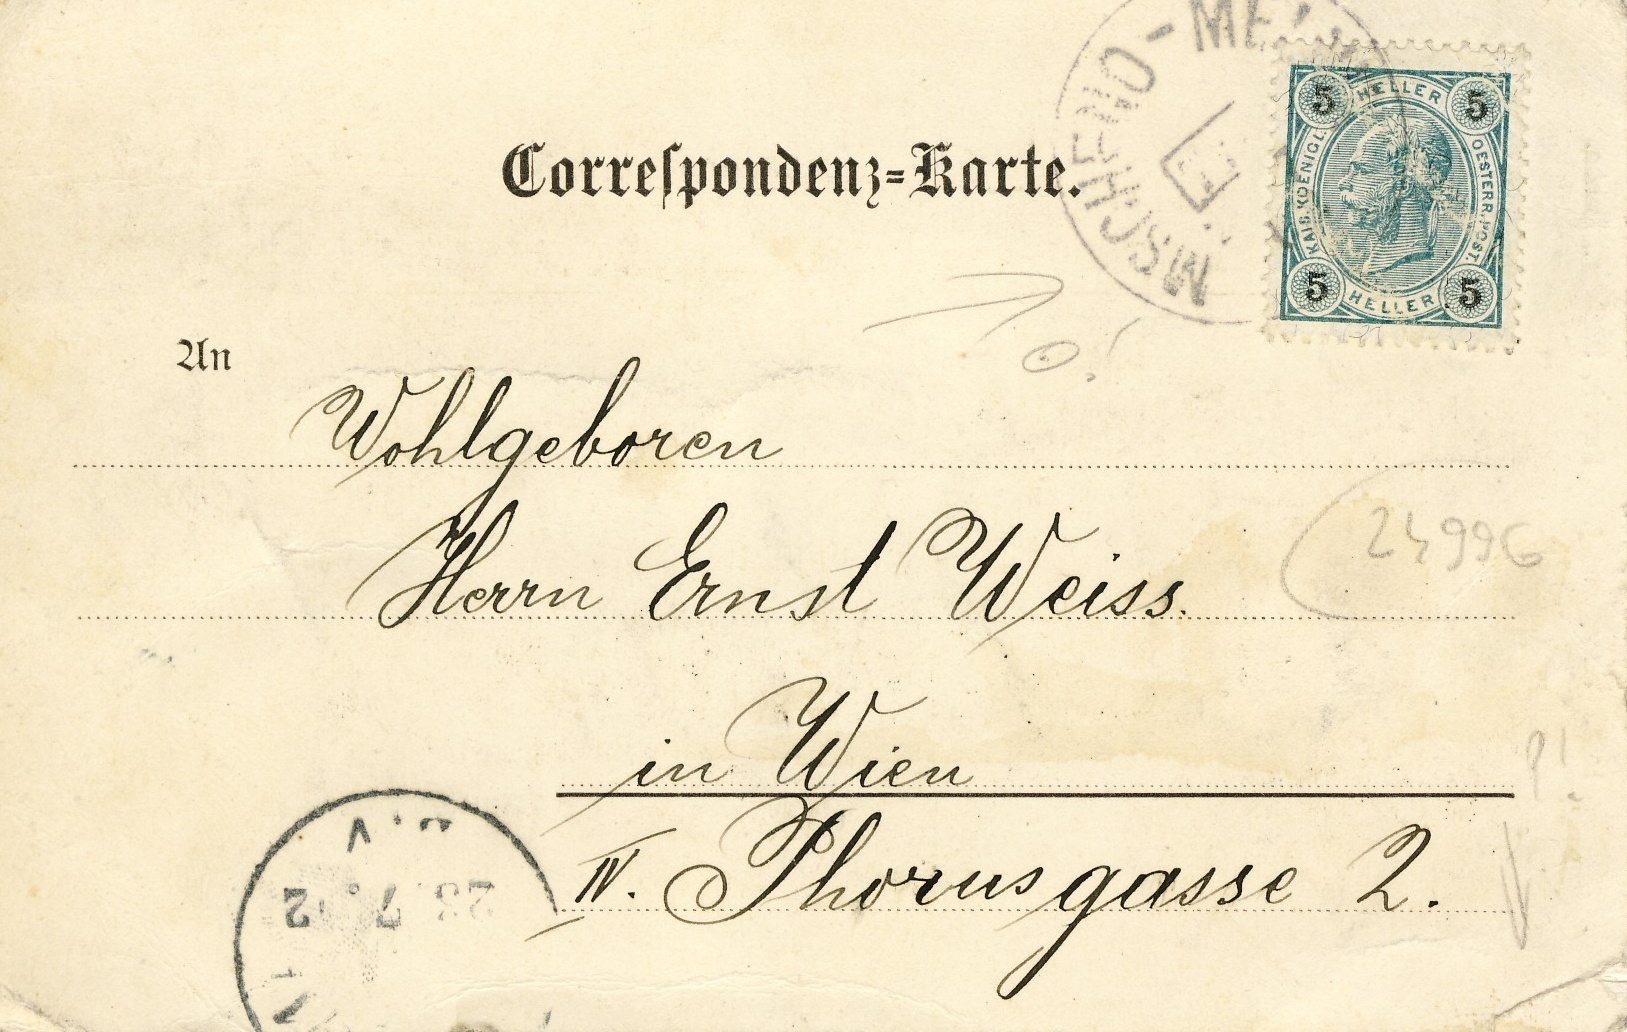 MSCHENO - ME
5 HELLER 5
KAIS. KOENIGL. OESTERR. POST.
5 HELLER 5
Correſpondenz=Karte.
An
Wohlgeboren
Herrn Ernst Weiss.
24996
in Wien
IV. Phorusgasse 2.